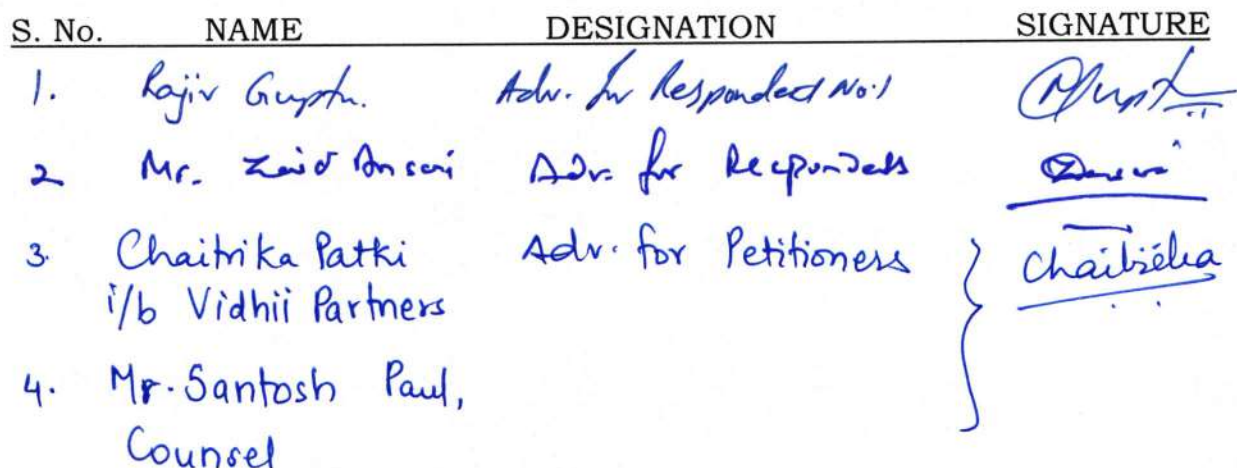 S. No. NAME DESIGNATION SIGNATURE
1. Rajiv Gupta. Adv. for Respondent No.1
2 Mr. Zaid Ansari Adv. for Respondents
3. Chaitrika Patki Adv. for Petitioners Chaitrika
i/b Vidhii Partners
4. Mr. Santosh Paul,
Counsel